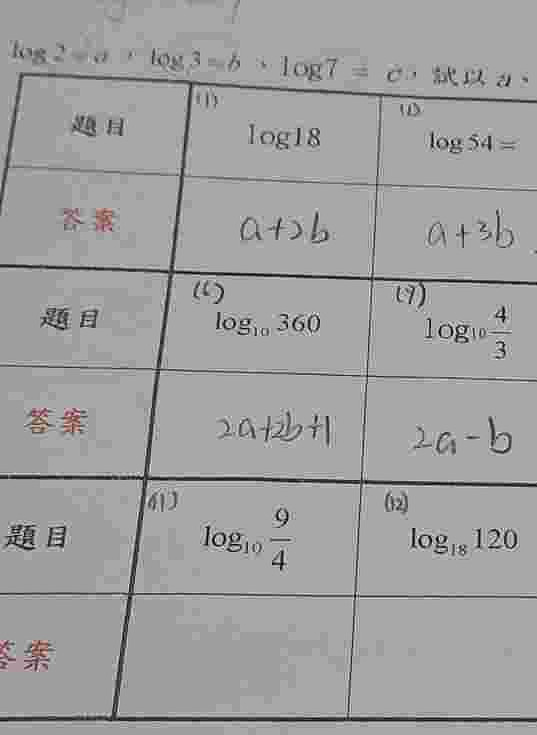 log 2 = a , log 3 = b 、 log 7 = c , 試以 a 、
題目
(1)
log18
(2)
log 54 =
答案
a+2b
a+3b
題目
(6)
log₁₀ 360
(9)
log₁₀ 4/3
答案
2a+2b+1
2a-b
題目
(11)
log₁₀ 9/4
(12)
log₁₈ 120
答案